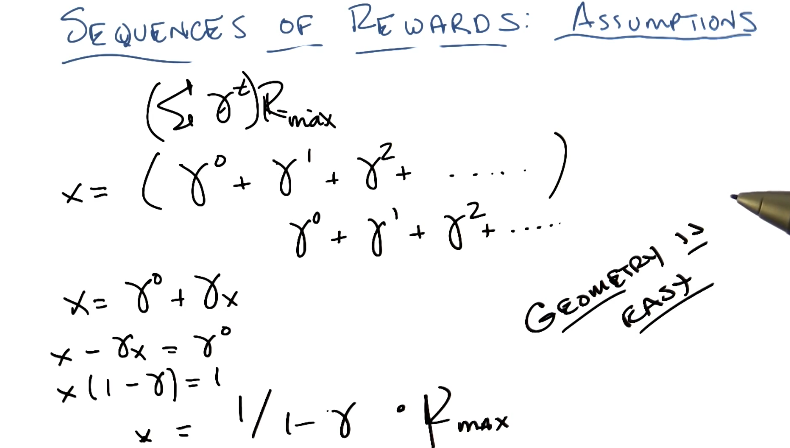 SEQUENCES OF REWARDS: ASSUMPTIONS
(Σ γ^t) R_max
x = ( γ^0 + γ^1 + γ^2 + ...... )
γ^0 + γ^1 + γ^2 + ......
x = γ^0 + γx
x - γx = γ^0
x(1 - γ) = 1
x = 1/1-γ · R_MAX
GEOMETRY IS
EASY